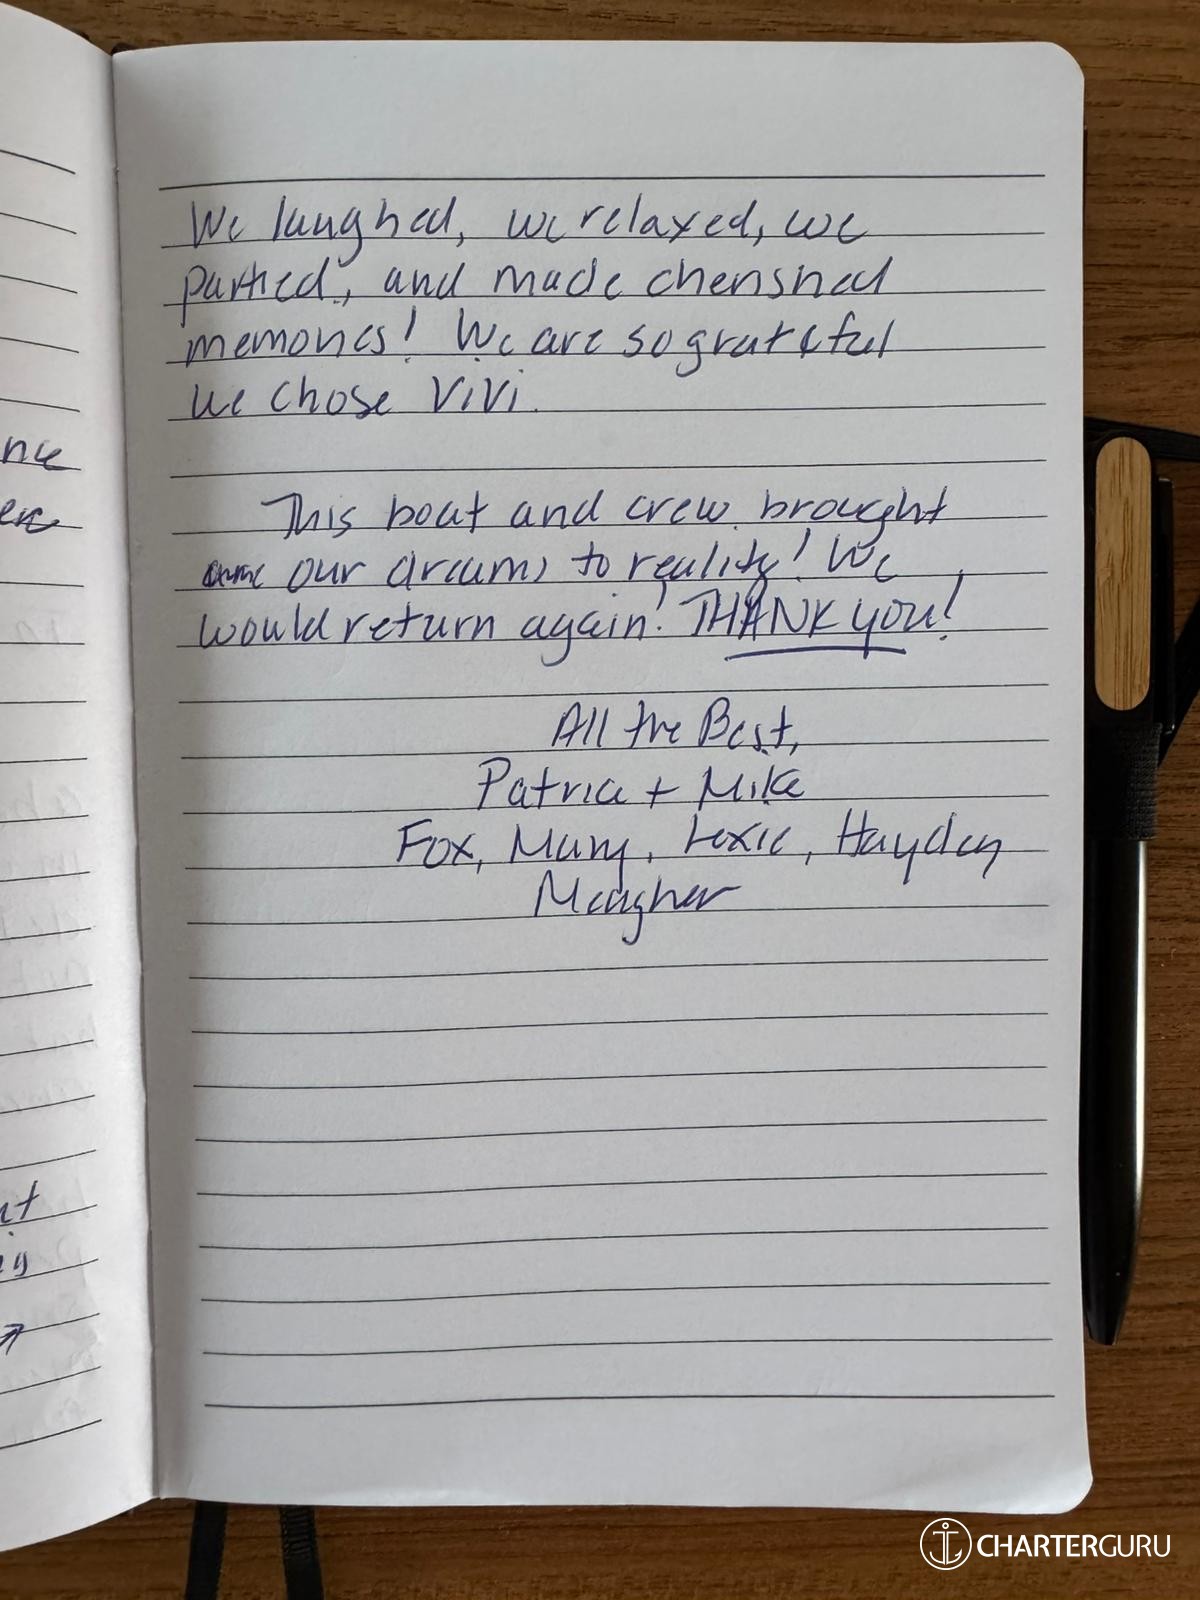 We laughed, we relaxed, we
partied, and made cherished
memories! We are so grateful
we chose ViVi.
This boat and crew brought
our dreams to reality! We
would return again! THANK YOU!
All the Best,
Patrice + Mike
Fox, Many, Lexie, Hayden
Meagher
nce
ere
CHARTERGURU